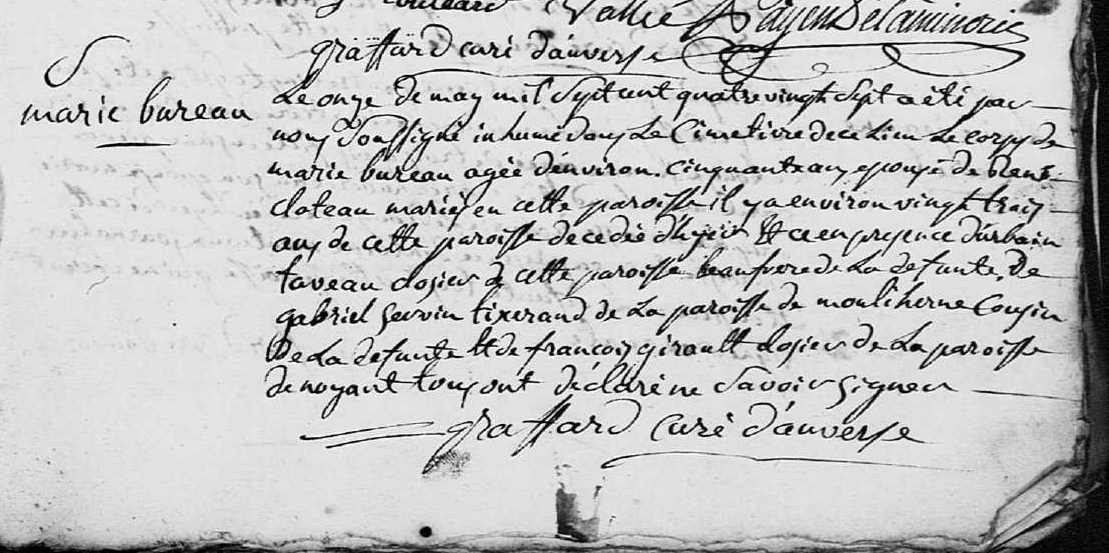 Vallée Payen Delaminorie
graffard curé dauverse
S
marie bureau
Le onze de may mil Sept cent quatre vingt Sept a été par
nous Soussigné inhumé dans Le Cimetiere de ce Lieu Le corps de
marie bureau agée denviron cinquante ans epouse de René
cloteau mariés en cette paroisse il y a environ vingt trois
ans de cette paroisse decedée d'hyeir Et ce en presence durbain
taveau closier de cette paroisse beaufrere de La defunte, De
gabriel Servin tixerand de La paroisse de mouliherne Cousin
De La defunte Et de francois girault closier de La paroisse
de noyant tous ont déclaré ne Savoir Signer
graffard curé d'auverse